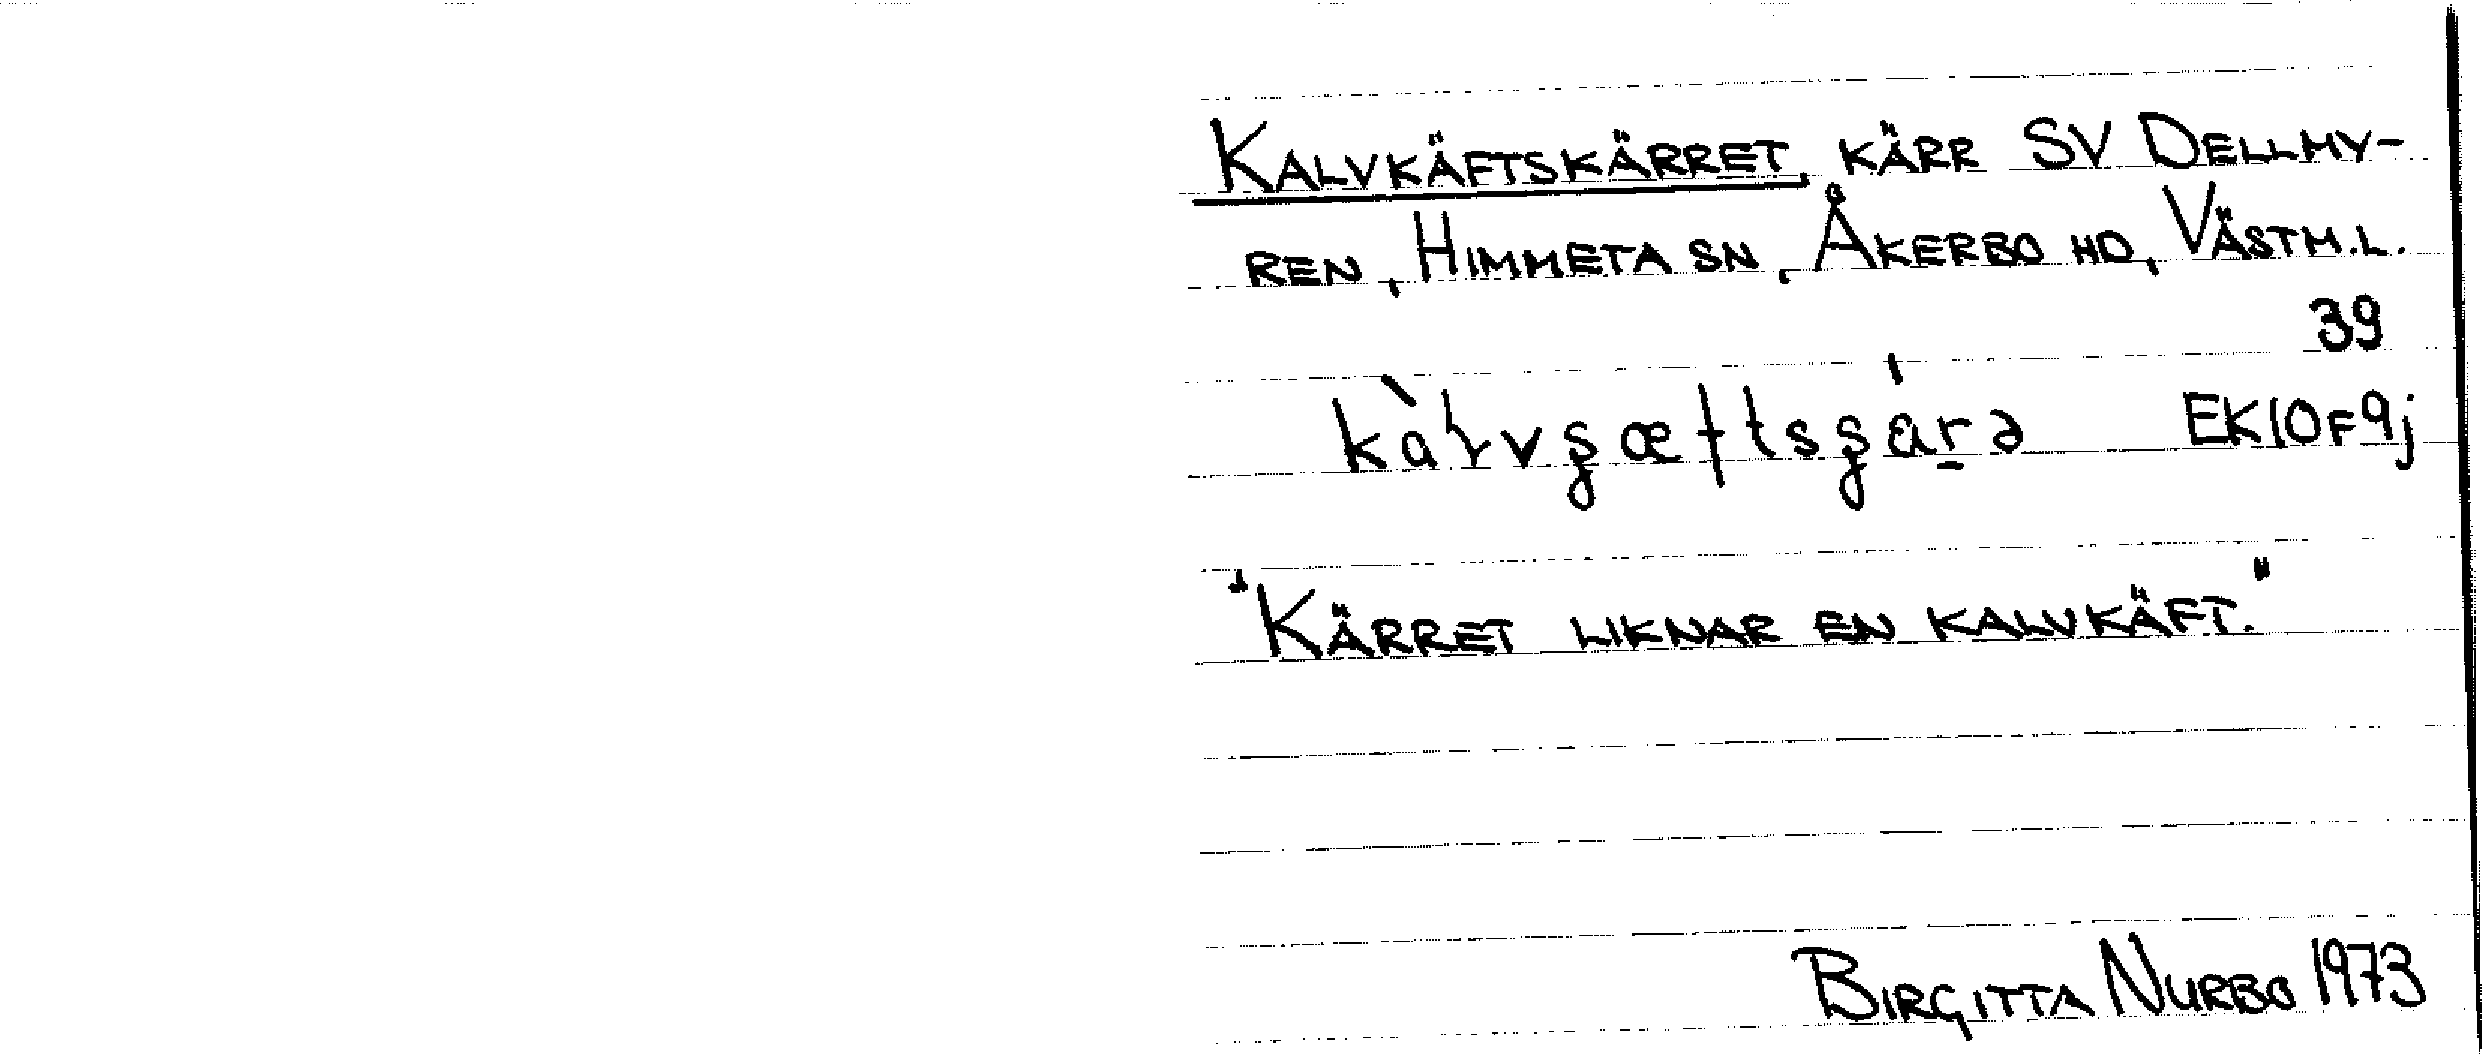 KALVKÄFTSKÄRRET, KÄRR SV DELLMY-
REN, HIMMETA SN, ÅKERBO HD, VÄSTM.L.
39
EK10F9j
"KÄRRET LIKNAR EN KALVKÄFT."
BIRGITTA NURBO 1973